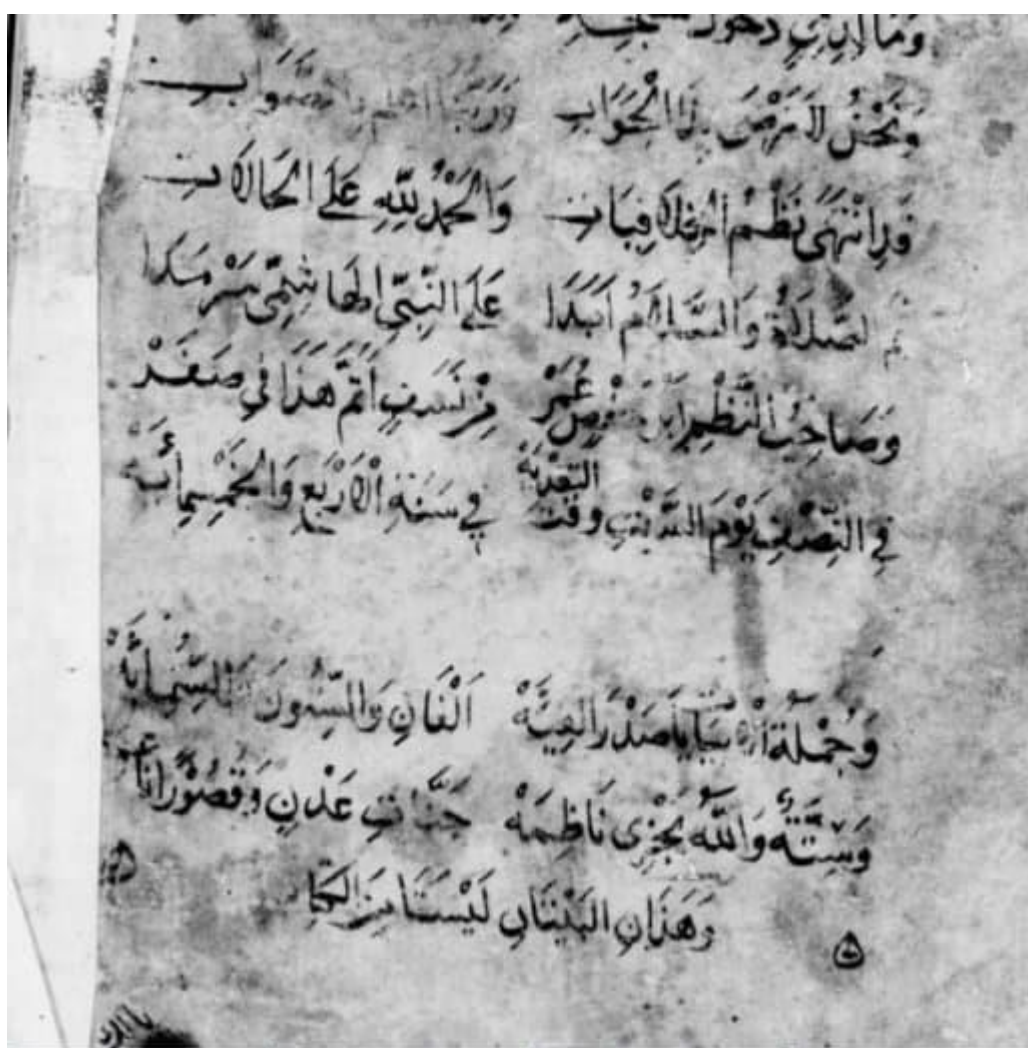 وَمَا لِإِبْنِ دخول
وَنَحْنُ لَا نَرْضَى بِذَا الْجَوَابِ وَرَبُّنَا اعلم بِالصَّوَابِ
قَدِ انْتَهَى نَظْمُ الْخِلَافِيَّاتِ وَالْحَمْدُ لِلّٰهِ عَلَى الْحَالَاتِ
ثم الصَّلَاةُ وَالسَّلَامُ أَبَدَا عَلَى النَّبِيِّ الْهَاشِمِيِّ سَرْمَدَا
وَصَاحِبُ النَّظْمِ أَبُو حَفْصٍ عُمَرْ مِنْ نَسَفٍ أَتَمَّ هَذَا فِي صَفَرْ
فِي النِّصْفِ يَوْمَ السَّبْتِ وَقْتَ فِي سَنَةِ الْأَرْبَعِ وَالْخَمْسِمِائَةْ
وَجُمْلَةُ الْأَبْيَاتِ يَا صَدْرَ الْفِئَهْ أَلْفَانِ وَالسِّتُّونَ وَالسِّتُّمِائَةْ
وَسِتَّةٌ وَاللّٰهُ يَجْزِي نَاظِمَهْ جَنَّاتِ عَدْنٍ وَقُصُورًا
وَهَذَانِ الْبَيْتَانِ لَيْسَتَا مِنَ